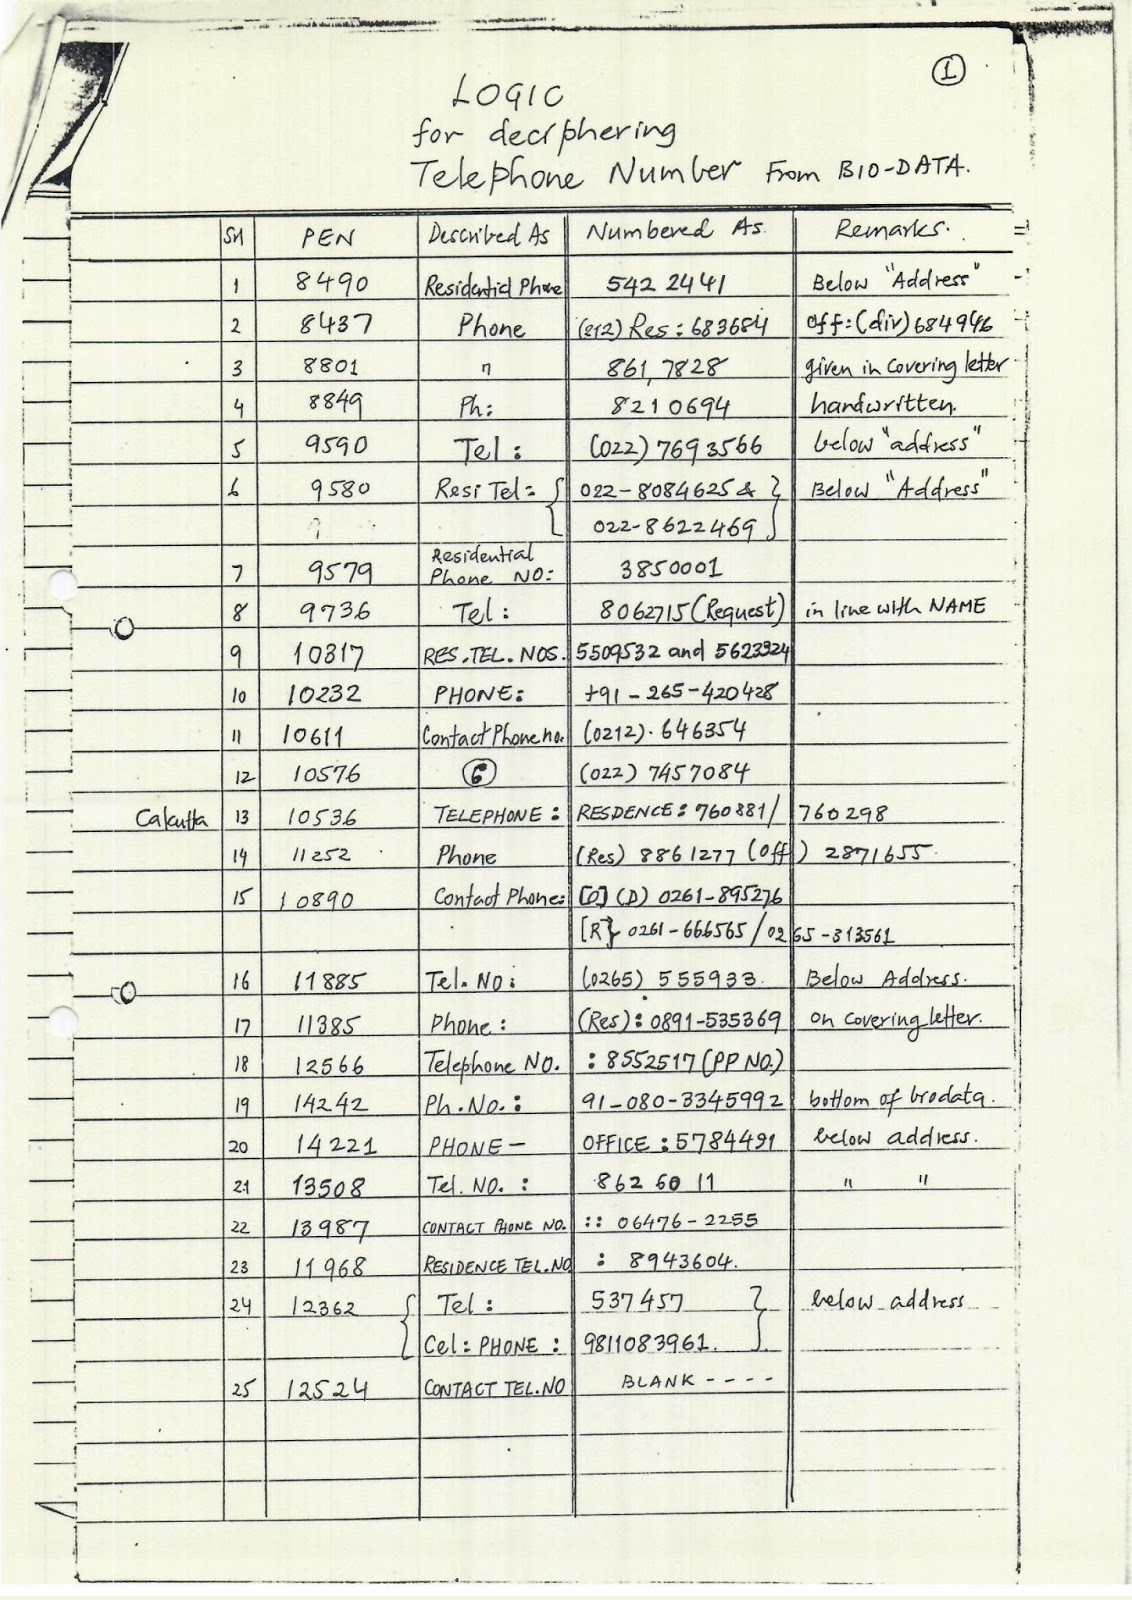 1
LOGIC
for deciphering
Telephone Number From BIO-DATA.
SN PEN Described As Numbered As. Remarks.
1 8490 Residential Phone 542 2441 Below "Address"
2 8437 Phone (212) Res: 683684 Off:(dir)684946
3 8801 " 861,7828 given in covering letter
4 8849 Ph: 8210694 handwritten.
5 9590 Tel: (022)7693566 below "address"
6 9580 Resi Tel= { 022-8084625 & } Below "Address"
? 022-8622469
7 9579 Residential Phone NO: 3850001
8 9736 Tel: 8062715(Request) in line with NAME
9 10317 RES.TEL.NOS. 5509532 and 5623924
10 10232 PHONE: +91-265-420428
11 10611 Contact Phone no. (0212).646354
12 10576 6 (022) 7457084
Calcutta 13 10536 TELEPHONE: RESDENCE: 760881/ 760298
14 11252 Phone (Res) 8861277 (Off) 2871655.
15 10890 Contact Phone: [O] (D) 0261-895276
[R} 0261-666565/0265-313561
16 11885 Tel.No: (0265) 555933. Below Address.
17 11385 Phone: (Res): 0891-535369 on covering letter.
18 12566 Telephone NO. : 8552517 (PP NO.)
19 14242 Ph.No.: 91-080-3345992 bottom of biodata.
20 14221 PHONE- OFFICE: 5784491 below address.
21 13508 Tel. NO. : 862 60 11 " "
22 13987 CONTACT PHONE NO. :: 06476-2255
23 11968 RESIDENCE TEL.NO : 8943604.
24 12362 { Tel: 537457 } below address
Cel: PHONE : 9811083961.
25 12524 CONTACT TEL.NO BLANK ----